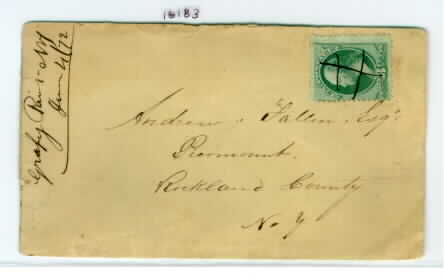 16183
Grassy Point NY
June 4/72
Andrew Fallon Esqr
Piermont.
Rockland County
N. Y